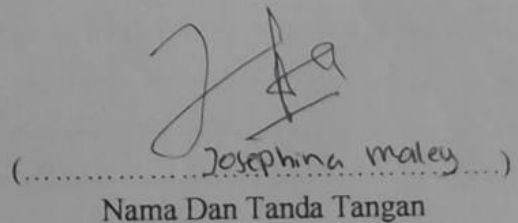 (.................Josephina maley.......)
Nama Dan Tanda Tangan